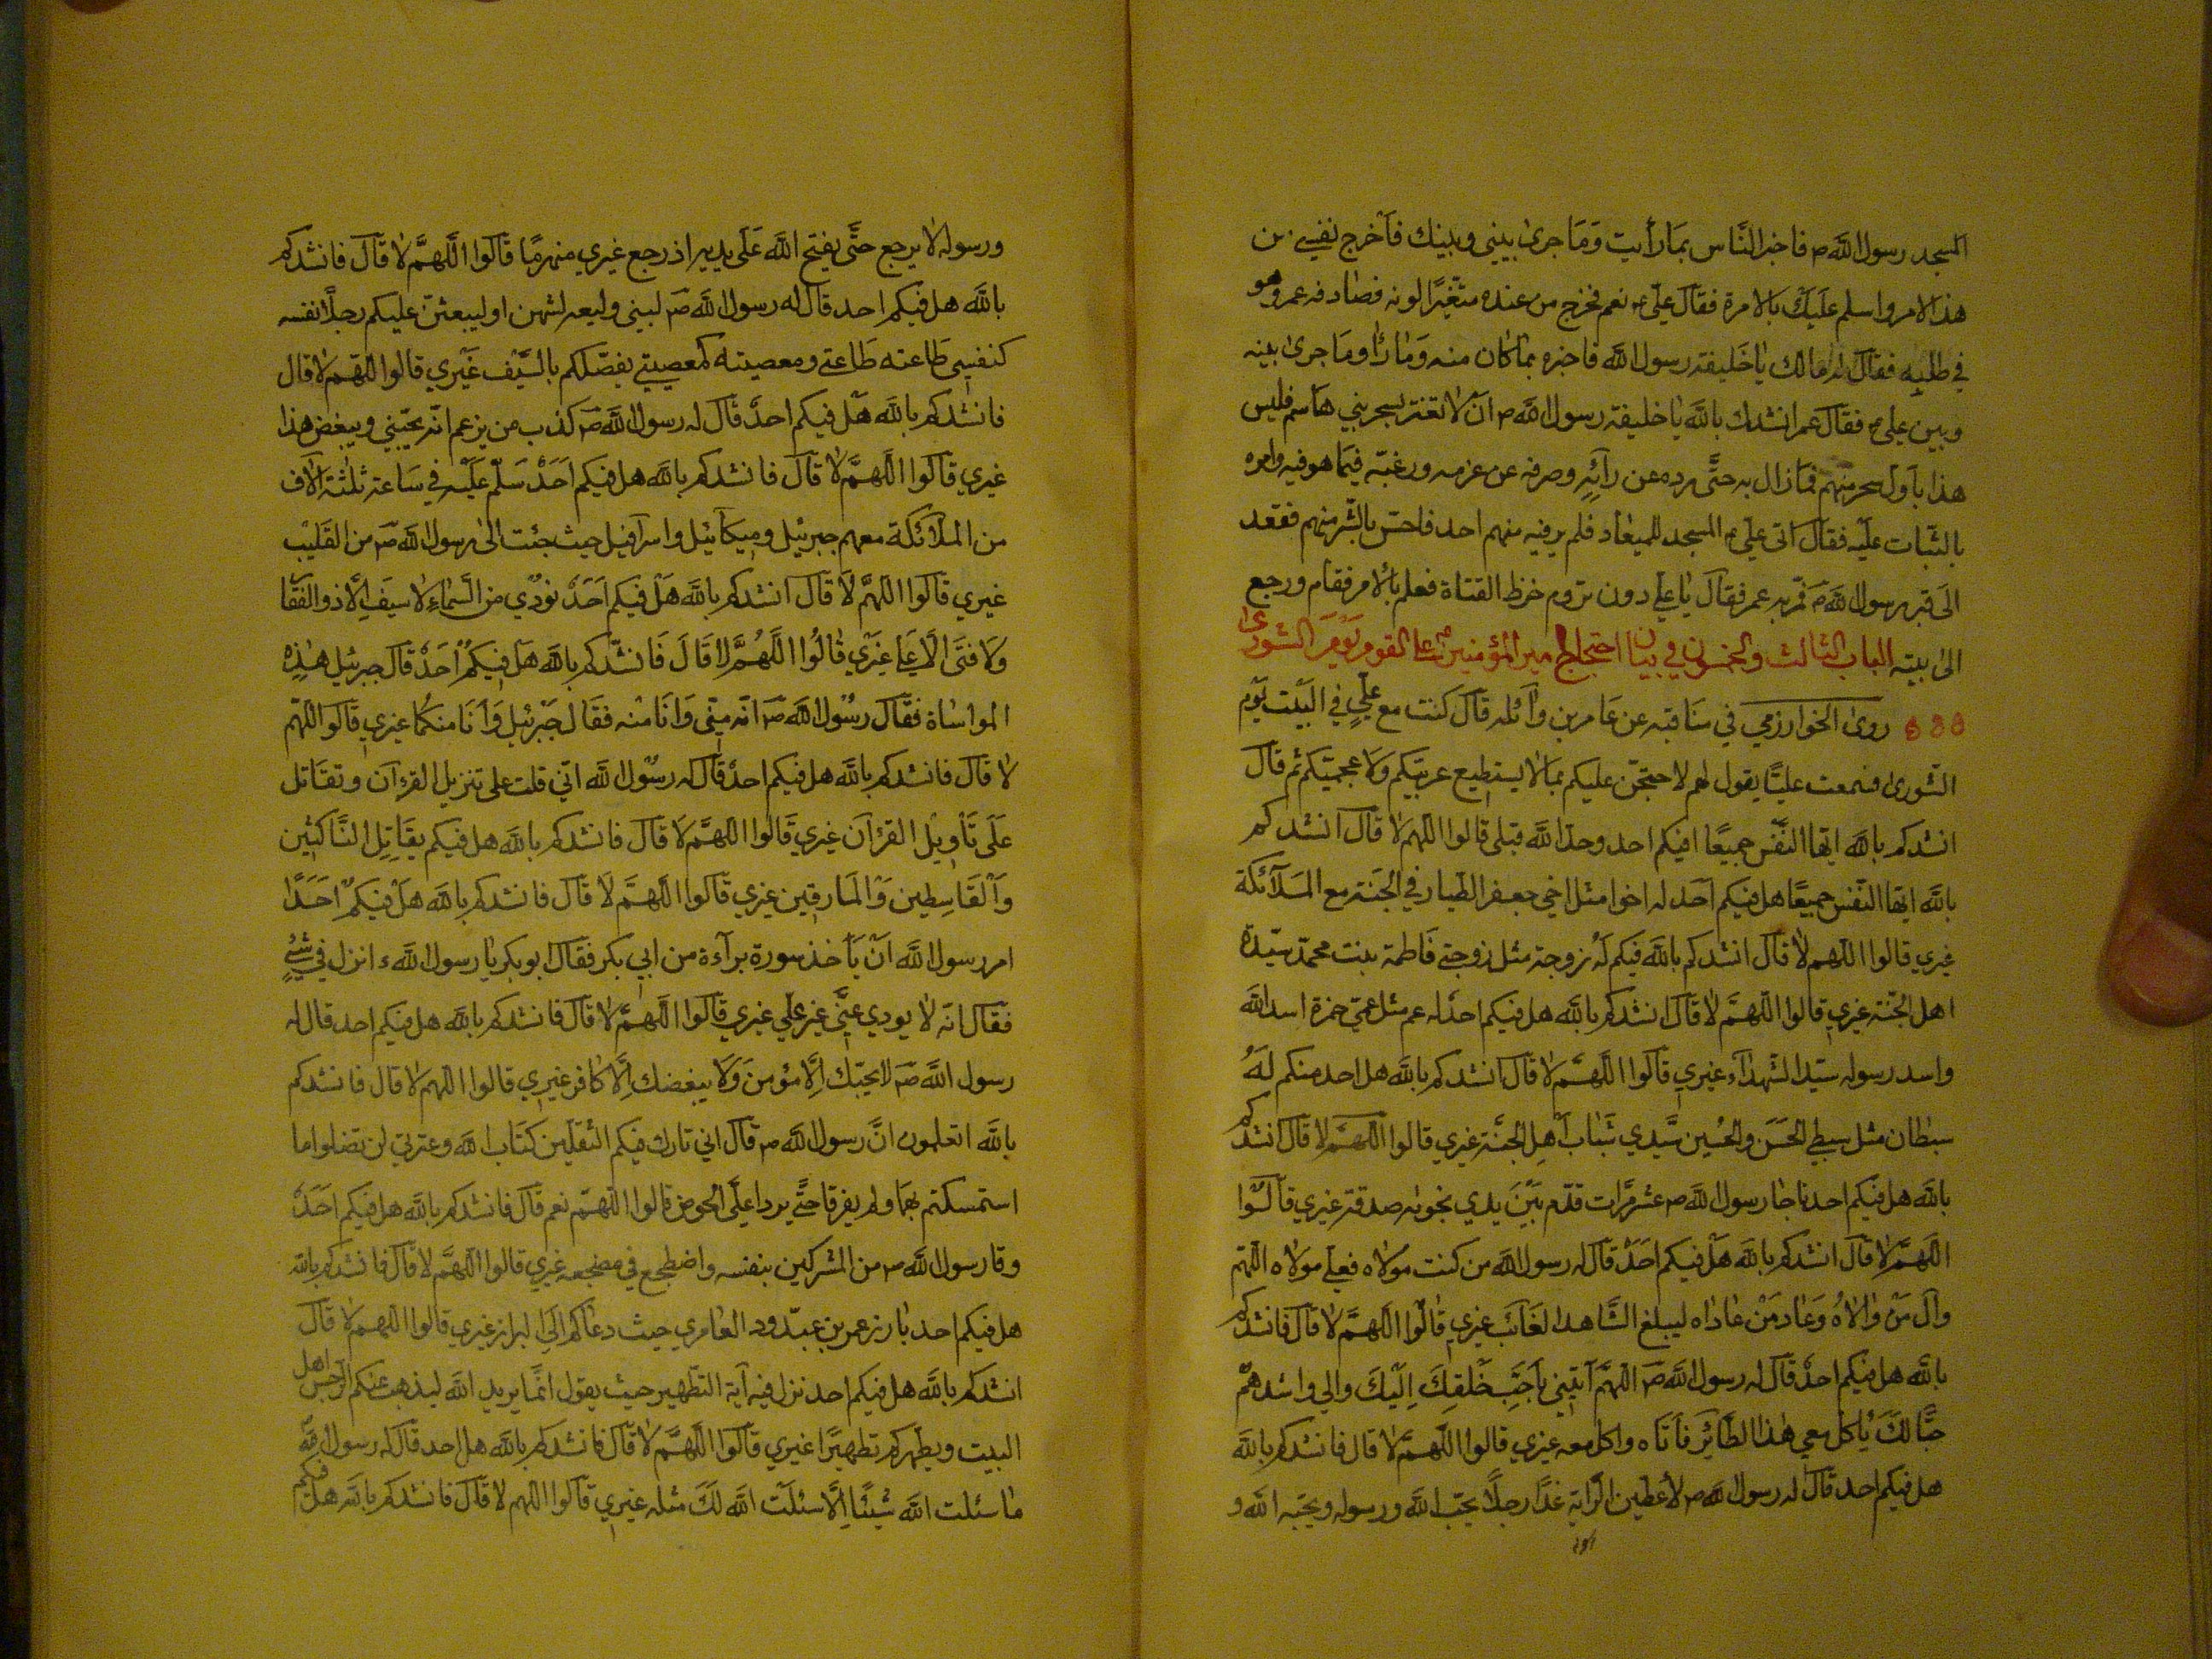 المسجد رسول الله ص فاخبر النّاس بما رأيت وما جرى بيني وبينك فاخرج نفسي من
هذا الامر واسلم عليك بالامرة فقال عليّ ع نعم فخرج من عنده متغيّرًا لونه فصادفه عمر وهو
في طلبه فقال له مالك يا خليفة رسول الله فاخبره بما كان منه وما رأى وما جرى بينه
وبين علي ع فقال عمر انشدك بالله يا خليفة رسول الله ص ان لا تغتر بسحر بني هاشم فليس
هذا باول سحر منهم فما زال به حتّى رده عن رأيه وصرفه عن عزمه ورغبه فيما هو فيه وامره
بالثبات عليه فقال اتى علي ع المسجد للميعاد فلم ير فيه منهم احد فاحسّ بالشر منهم فقعد
الى قبر رسول الله ص فمرّ به عمر فقال يا علي دون تروم خرط القتاة فعلم بالامر فقام ورجع
الى بيته الباب الثالث والخمسون في بيان احتجاج امير المؤمنين ع على القوم يوم الشورى
روى الخوارزمي في مناقبه عن عامر بن واثله قال كنت مع عليّ في البيت يوم
الشورى فسمعت عليّا يقول لهم لاحتجّن عليكم بما لا يستطيع عربيّكم ولا عجميّكم ثم قال
انشدكم بالله ايّها النّفر جميعًا افيكم احد وحد الله قبلي قالوا اللهم لا قال انشدكم
بالله ايّها النّفر جميعًا هل فيكم احد له اخوا مثل اخي جعفر الطيار في الجنة مع الملآئكة
غيري قالوا اللهم لا قال انشدكم بالله فيكم له زوجة مثل زوجتي فاطمة بنت محمّد سيّدة
اهل الجنّة غيري قالوا اللهمّ لا قال انشدكم بالله هل فيكم احد له عم مثل عمّي حمزة اسد الله
واسد رسوله سيّد الشهدآء غيري قالوا اللّهمّ لا قال انشدكم بالله هل احد منكم له
سبطان مثل سبطي الحسن والحسين سيّدي شباب اهل الجنّة غيري قالوا اللهمّ لا قال انشدكم
بالله هل فيكم احد ناجا رسول الله ص عشر مرّات قدّم بين يدي نجويه صدقة غيري قالوا
اللّهمّ لا قال انشدكم بالله هل فيكم احد قال له رسول الله من كنت مولاه فعلي مولاه اللّهم
وال من والاه وعاد من عاداه ليبلغ الشّاهد الغائب غيري قالوا اللّهمّ لا قال فانشدكم
بالله هل فيكم احد قال له رسول الله ص اللهمّ آتيني باحبّ خلقك اليك والي واشدهم
حبّا لك يأكل معي هذا الطآئر فاتاه واكل معه غيري قالوا اللّهمّ لا قال فانشدكم بالله
هل فيكم احد قال له رسول الله ص لاعطين الرّاية غدًا رجلًا يحبّ الله ورسوله ويحبّه الله و
ورسوله لا يرجع حتّى يفتح الله على يديه اذ رجع غيري منهزمًا قالوا اللّهمّ لا قال فانشدكم
بالله هل فيكم احد قال له رسول الله ص لبني وليعه لتنتهن او ليبعثنّ عليكم رجلًا نفسه
كنفسي طاعته طاعتي ومعصيته كمعصيتي يفصّلكم بالسّيف غيري قالوا اللّهم لا قال
فانشدكم بالله هل فيكم احد قال له رسول الله ص كذب من يزعم انّه يحبّني ويبغض هذا
غيري قالوا اللّهمّ لا قال فانشدكم بالله هل فيكم احد سلّم عليه في ساعة ثلثة آلاف
من الملآئكة معهم جبرئيل وميكآئيل واسرآفيل حيث جئت الى رسول الله ص من القليب
غيري قالوا اللهمّ لا قال انشدكم بالله هل فيكم احد نودي من السّماء لا سيف الّا ذو الفقا
ولا فتى الّا علي غيري قالوا اللّهمّ لا قال فانشدكم بالله هل فيكم احد قال جبرئيل هذه
المواساة فقال رسول الله ص انّه منّي وانا منه فقال جبرئيل وانا منكما غيري قالوا اللّهم
لا قال فانشدكم بالله هل فيكم احد قال له رسول الله انّي قلت على تنزيل القرءان وتقاتل
على تأويل القرءان غيري قالوا اللهمّ لا قال فانشدكم بالله هل فيكم يقاتل النّاكثين
والقاسطين والمارقين غيري قالوا اللّهمّ لا قال فانشدكم بالله هل فيكم احدًا
امر رسول الله ان يأخذ سورة برآءة من ابي بكر فقال ابو بكر يا رسول الله ءانزل في شيء
فقال انّه لا يودي عنّي غير علي غيري قالوا اللّهمّ لا قال فانشدكم بالله هل فيكم احد قال له
رسول الله ص لا يحبّك الّا مؤمن ولا يبغضك الّا كافر غيري قالوا اللهم لا قال فانشدكم
بالله اتعلمون انّ رسول الله ص قال اني تارك فيكم الثقلين كتاب الله وعترتي لن تضلوا ما
استمسكتم بهما ولم يفرقا حتّى يردا علّى الحوض قالوا اللّهمّ نعم قال فانشدكم بالله هل فيكم احد
وقا رسول الله ص من المشركين بنفسه واضطجع في مضجعه غيري قالوا اللّهمّ لا قال فانشدكم بالله
هل فيكم احد بارز عمر بن عبدّود العامري حيث دعاكم الى البراز غيري قالوا اللهم لا قال
انشدكم بالله هل فيكم احد نزل فيه آية التطهير حيث يقول انّما يريد الله ليذهب عنكم الرّجس اهل
البيت ويطهركم تطهيرًا غيري قالوا اللّهمّ لا قال فانشدكم بالله هل احد قال له رسول الله
ما سئلت الله شيئًا الّا سئلت الله لك مثله غيري قالوا اللهم لا قال فانشدكم بالله هل فيكم